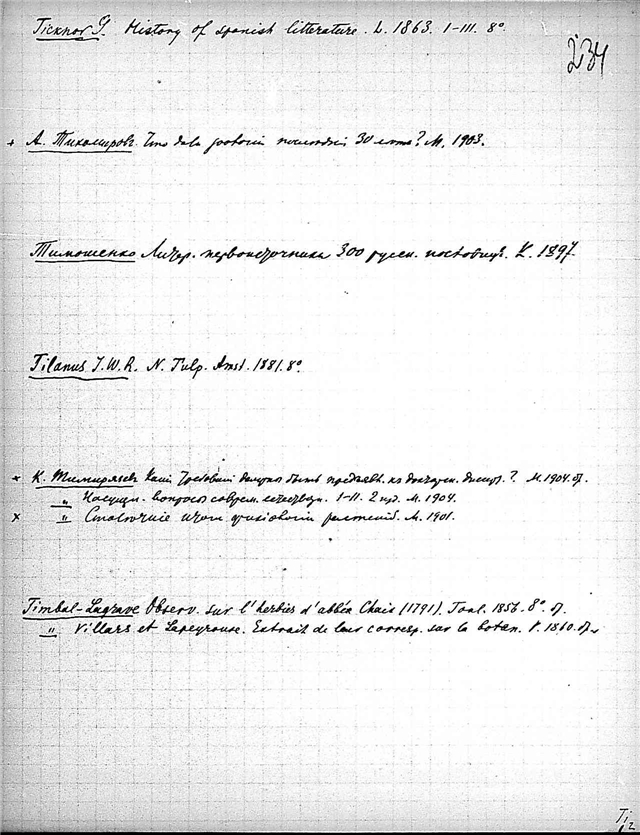 Ticknor G. History of spanish litterature. L. 1863. I-III. 8°
234
+ А. Тихомиров. Что дала последніи 30 лѣтъ? М. 1903.
Тимошенко Литер. первоисточники 300 русск. пословицъ. К. 1897.
Tilanus J.W.R. N. Tulp. Amst. 1881. 8°
+ К. Тимирязевъ Какія требованія должны быть предъявл. къ ? М. 1904. 8°.
" Насущн. вопросы соврем. естествозн. I-II. 2 изд. М. 1904.
x " Столѣтніе итоги физіологіи растеній. М. 1901.
Timbal-Lagrave Observ. sur l'herbier d'abbéa Chaix (1791). Toul. 1856. 8°. 8°.
" Villars et Lapeyrouse. Extrait de leur corresp. sur la botan. 1860. 8°.
Ti